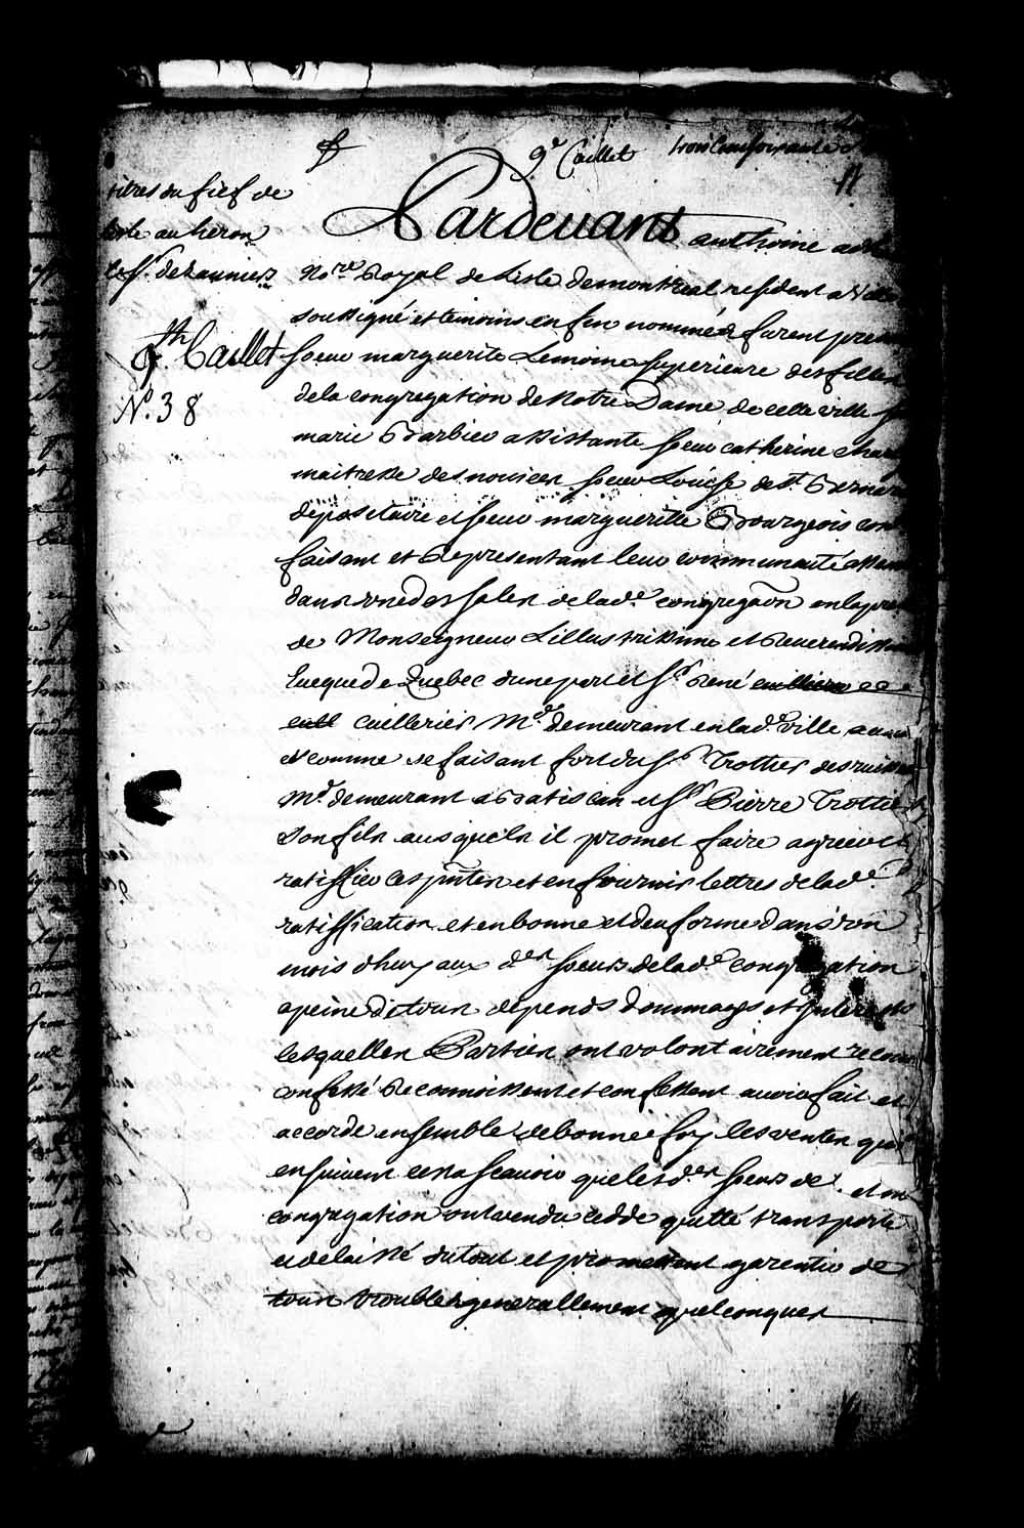 9e Caillet trois Cens soixante
11
titres du fief de
lisle au heron
le Sr. de Launiere
9th. Caillet
No. 38
Pardevant anthoine adh
Nore. Royal de Lisle de montreal resident a Ville
soussigné et temoins enfin nommés furent presens
soeur marguerite Lemoine superieure des filles
de la congregation de Notre Dame de cette ville
marie Barbier assistante soeur catherine charly
maitresse des novices soeur Louise de St. Bernard
depositaire et soeur marguerite Bourgeois cons
faisant et Representant leur communauté assem
dans une des sales de lade. congregaon en la pres
de Monseigneur Lillustrissime et Reverendissime
Euesque de Quebec dune part et Sr. René
cuillerier Md. demeurant en lade. ville
et comme se faisant fort du Sr. Trottier desruisseaux
Md. demeurant a Batiscan et Sr. Pierre Trottier
son fils ausquels il promet faire agreer et
ratiffier ces pntes et en fournir lettres de lade.
ratiffication et en bonne et deue forme dans un
mois dhuy aux des. soeurs de lade. congregation
a peine de tous depends dommages et interests
lesquelles Parties ont volontairement recon
confessé Reconnoissent et confessent avoir fait et
accordé ensemble de bonne foy les ventes qui
ensuivent cest a scavoir que lesdes. soeurs de
congregation ont vendu cedde quitté transporté
et delaissé du tout et promettent garentir de
tous troubles generallement quelconques